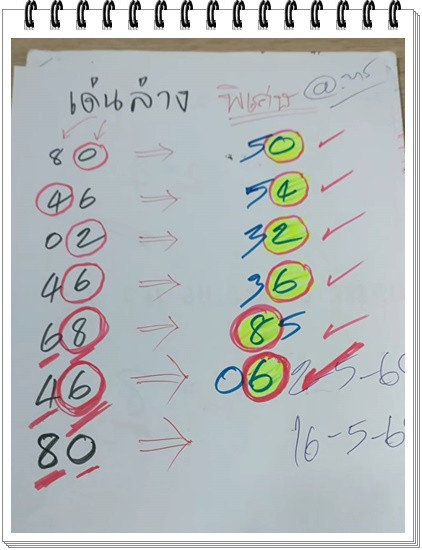 เด่นล่าง พิเศษ
80 ⇒ 50 ✓
46 ⇒ 54 ✓
02 ⇒ 32 ✓
46 ⇒ 36 ✓
68 ⇒ 85 ✓
46 ⇒ 06 ✓ 2-5-6
80 ⇒ 16-5-6